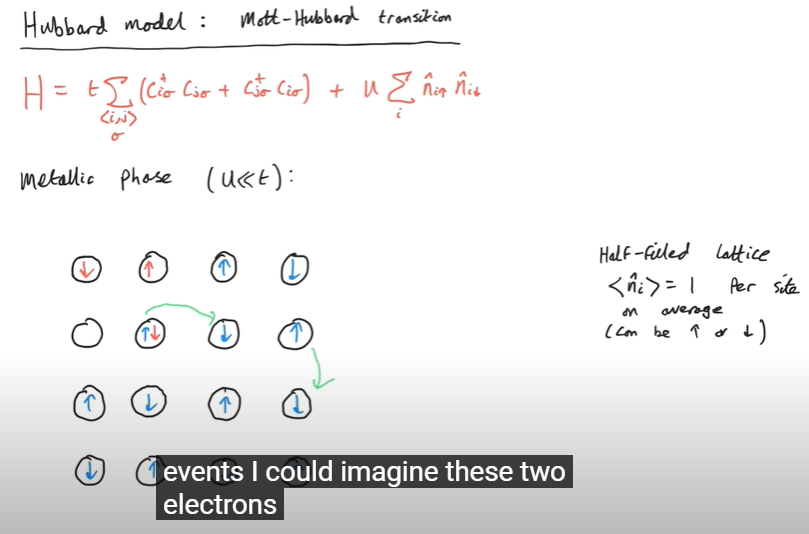 Hubbard model : Mott-Hubbard transition
H = t∑(c†iσ cjσ + c†jσ ciσ) + U ∑ n̂i↑ n̂i↓
<i,j> i
σ
Metallic phase (U≪t):
Half-filled lattice
<n̂i> = 1 per site
on average
(can be ↑ or ↓)
↓ ↑ ↑ ↓
↑↓ ↓ ↑
↑ ↓ ↑ ↓
↓ ↑
events I could imagine these two
electrons